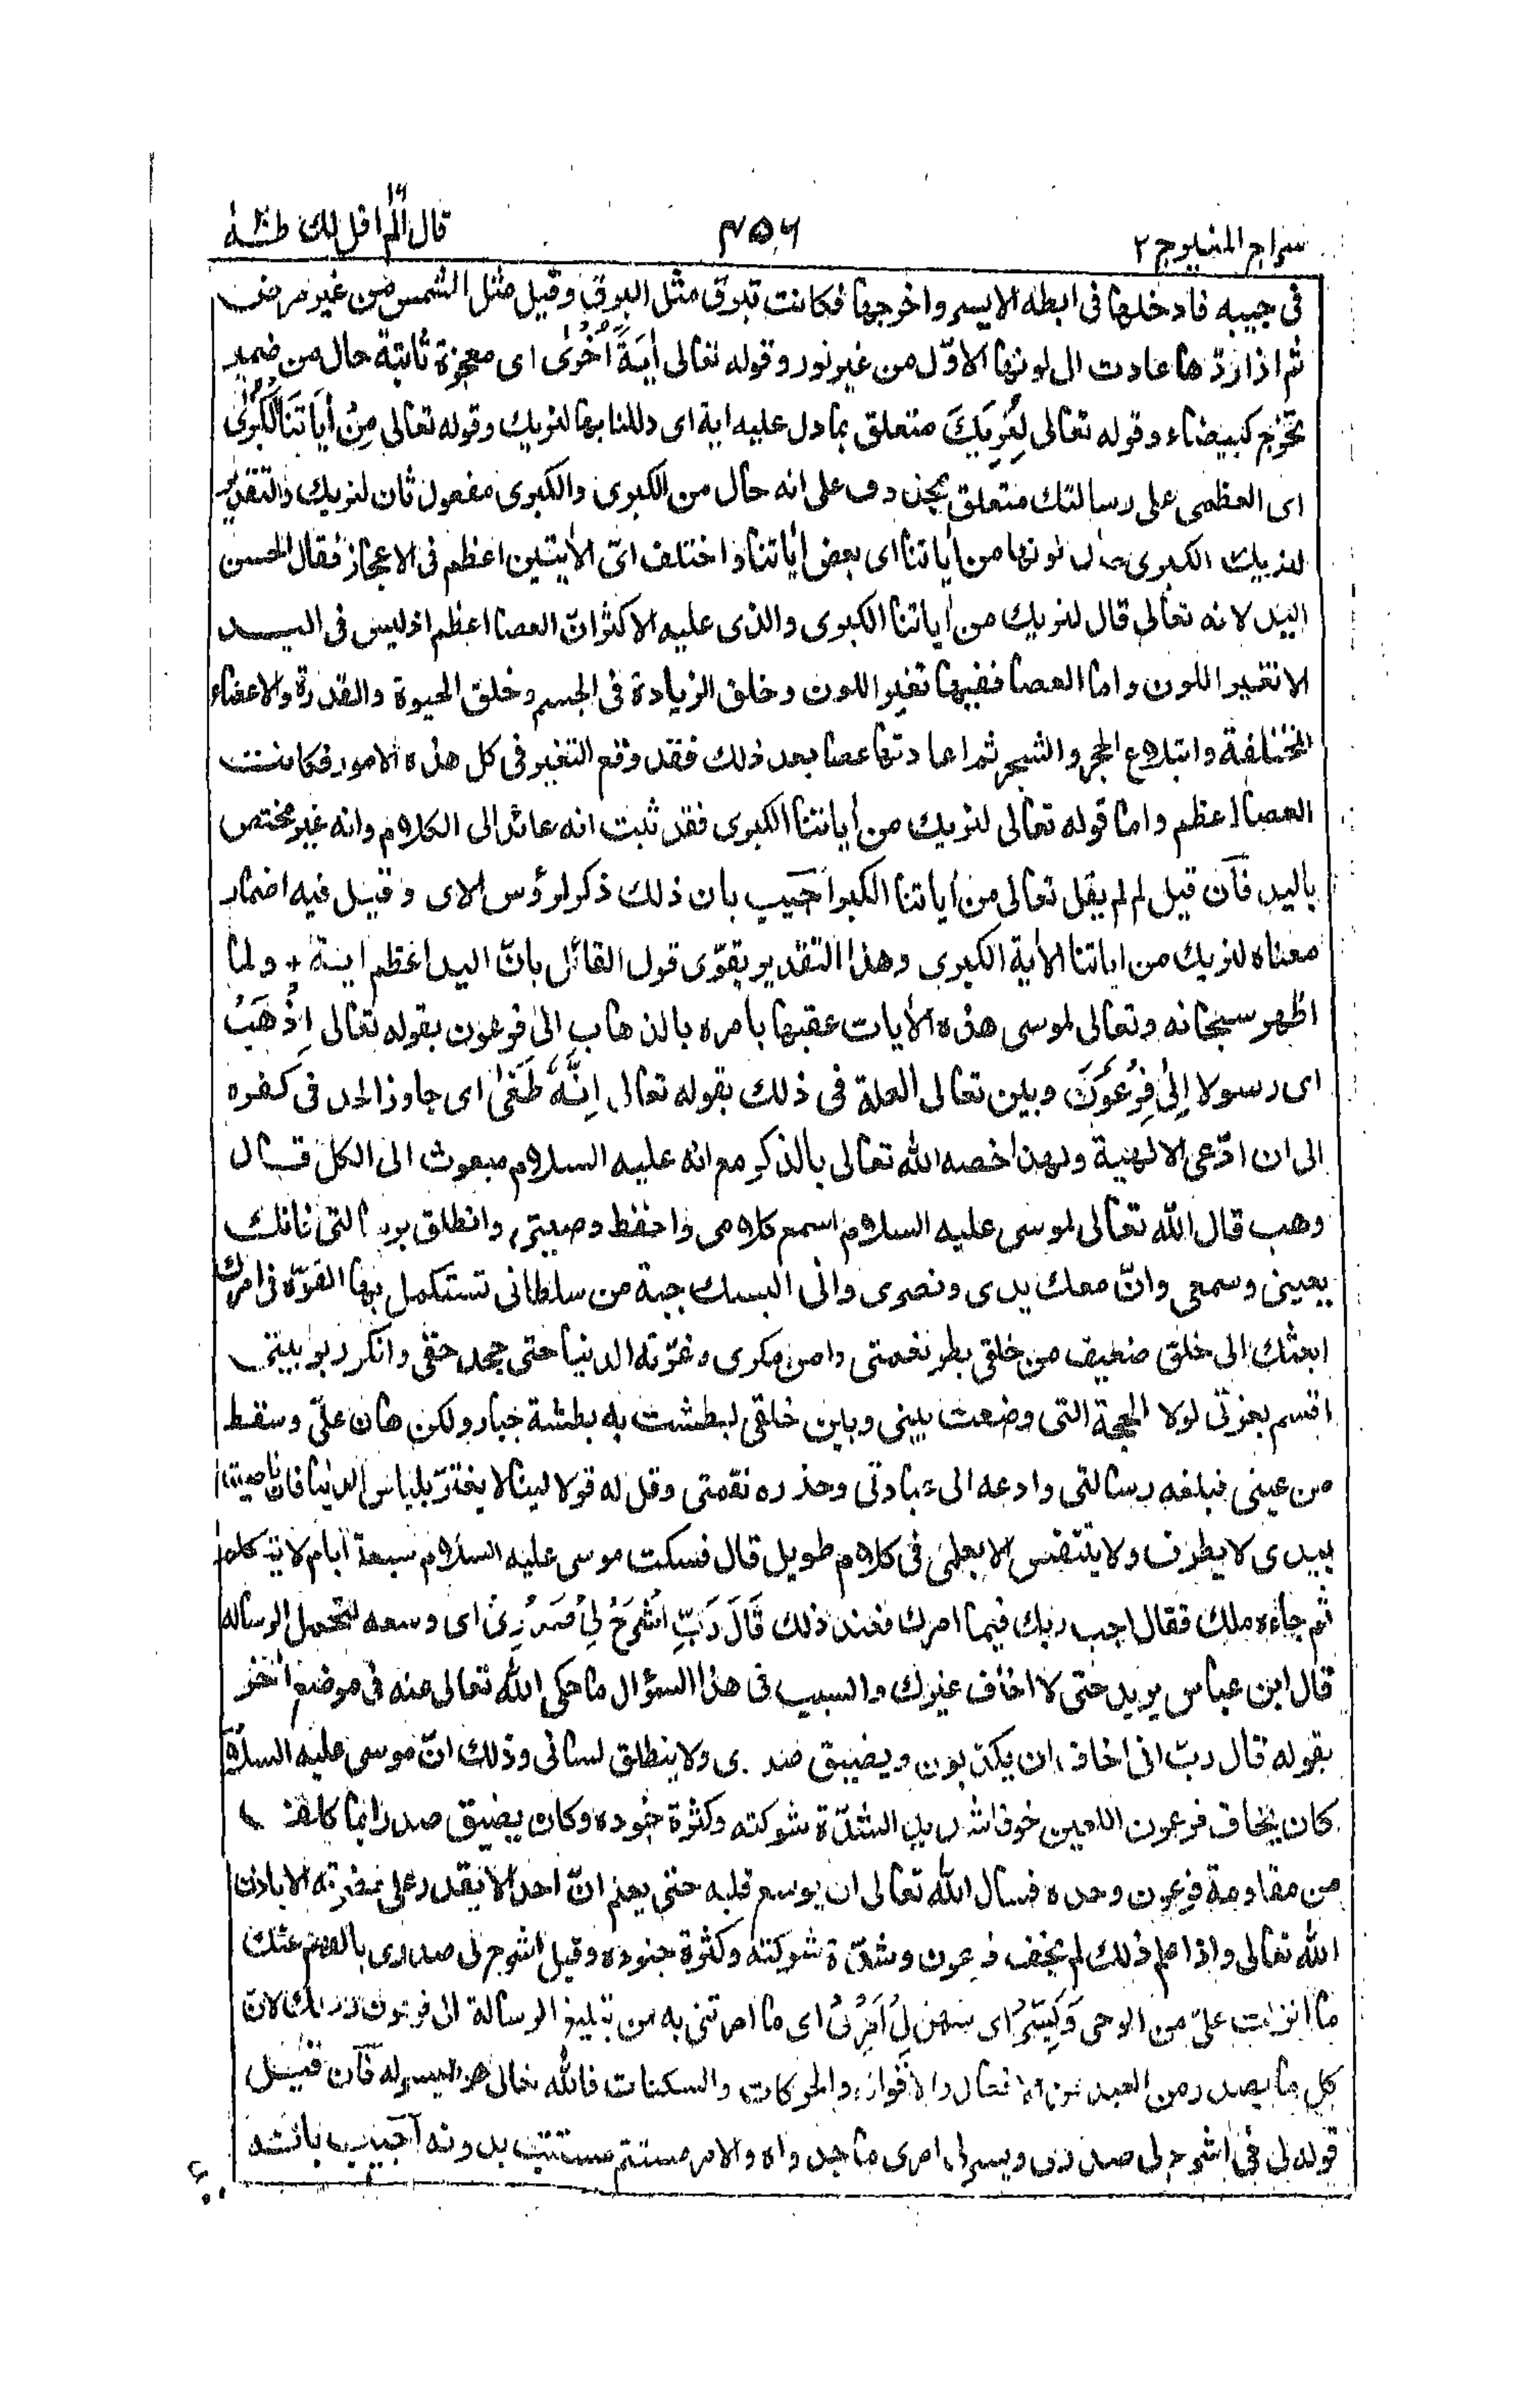 سراج المنير ج ٢
٤٥٦
قال الم ١٦ اقل لك طٰهٰ
فى جيبه فادخلها فى ابطه الايسر واخرجها فكانت تبرق مثل البرق وقيل مثل الشمس من غير مرض
ثم اذا ردّها عادت الى لونها الاوّل من غير نور وقوله تعالى اٰيَةً اُخْرٰى اى معجزة ثانية حال من ضمير
تخرج كبيضاء وقوله تعالى لِنُرِيَكَ متعلق بما دل عليه اية اى دللنا بها لنريك وقوله تعالى مِنْ اٰيَاتِنَا الْكُبْرٰى
اى العظمى على رسالتك متعلق بمحذوف على انه حال من الكبرى والكبرى مفعول ثان لنريك والتقدير
لنريك الكبرى حال كونها من اٰياتنا اى بعض اٰياتنا واختلف اىّ الاٰيتين اعظم فى الاعجاز فقال الحسن
اليد لانه تعالى قال لنريك من اٰياتنا الكبرى والذى عليه الاكثر انّ العصا اعظم اذ ليس فى اليد
الا تغير اللون واما العصا ففيها تغير اللون وخلق الزيادة فى الجسم وخلق الحيوة والقدرة والاعضاء
المختلفة وابتلاع الحجر والشجر ثم اعادتها عصا بعد ذلك فقد وقع التغير فى كل هذه الامور فكانت
العصا اعظم واما قوله تعالى لنريك من اٰياتنا الكبرى فقد ثبت انه عائد الى الكلام وانه غير مختص
باليد فان قيل لم لم يقل تعالى من اٰياتنا الكبر اجيب بان ذلك ذكر لرؤس الاى وقيل فيه اضمار
معناه لنريك من اياتنا الاٰية الكبرى وهذا التقدير يقوّى قول القائل بانّ اليد اعظم اية + ولما
اظهر سبحانه وتعالى لموسى هذه الاٰيات عقبها بامره بالذهاب الى فرعون بقوله تعالى اِذْهَبْ
اى رسولا اِلٰى فِرْعَوْنَ وبين تعالى العلة فى ذلك بقوله تعالى اِنَّهٗ طَغٰى اى جاوز الحد فى كفره
الى ان ادّعى الالهية ولهذا خصه الله تعالى بالذكر مع انه عليه السلام مبعوث الى الكل قال
وهب قال الله تعالى لموسى عليه السلام اسمع كلامى واحفظ وصيتى وانطلق برسالتى فانك
بعينى وسمعى وانّ معك يدى ونصرى وانى البسك جبة من سلطانى تستكمل بها القوّة فى امرك
ابعثك الى خلق ضعيف من خلقى بطر نعمتى وامن مكرى وغرّته الدنيا حتى جحد حقى وانكر ربوبيتى
اقسم بعزتى لولا الحجة التى وضعت بينى وبين خلقى لبطشت به بطشة جبار ولكن هان علىّ وسقط
من عينى فبلغه رسالتى وادعه الى عبادتى وحذره نقمتى وقل له قولا لينا لا يغترّ بلباس الدنيا فان ناصيته
بيدى لا يطرف ولا يتنفس الا بعلمى فى كلام طويل قال فسكت موسى عليه السلام سبعة ايام لا يتكلم
ثم جاءه ملك فقال اجب ربك فيما امرك فعند ذلك قَالَ رَبِّ اشْرَحْ لِيْ صَدْرِيْ اى وسعه لتحمل الرسالة
قال ابن عباس يريد حتى لا اخاف غيرك والسبب فى هذا السؤال ما حكى الله تعالى عنه فى موضع اٰخر
بقوله قال ربّ انى اخاف ان يكذبون ويضيق صدرى ولا ينطلق لسانى وذلك انّ موسى عليه السلام
كان يخاف فرعون اللعين خوفا شديد الشدّة شوكته وكثرة جنوده وكان يضيق صدرا بما كلف
من مقاومة فرعون وحده فسأل الله تعالى ان يوسع قلبه حتى يعلم انّ احدا لا يقدر على مضرته الا باذن
الله تعالى واذا علم ذلك لم يخف فرعون وشدّة شوكته وكثرة جنوده وقيل اشرح لى صدرى بالفهم عنك
ما انزلت علىّ من الوحى وَيَسِّرْ اى سهل لِيْ اَمْرِيْ اى ما امرتنى به من تبليغ الرسالة الى فرعون وذلك لان
كل ما يصدر من العبد من الافعال والاقوال والحركات والسكنات فالله تعالى هو الميسر له فان قيل
قوله لى فى اشرح لى صدرى ويسر لى امرى ما جدواه والامر مستتم مستتب بدونه اجيب بانه